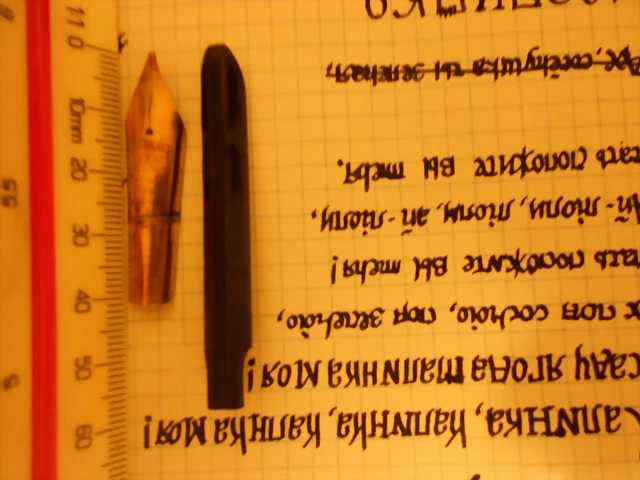 Калинка, калинка, калинка моя!
саду ягода малинка моя!
под сосною, под зеленою,
положите вы меня!
Ай-люли, люли, ай-люли,
положите вы меня.
сосёнушка ты зеленая,
11 0 10mm 20 30 40 50 60